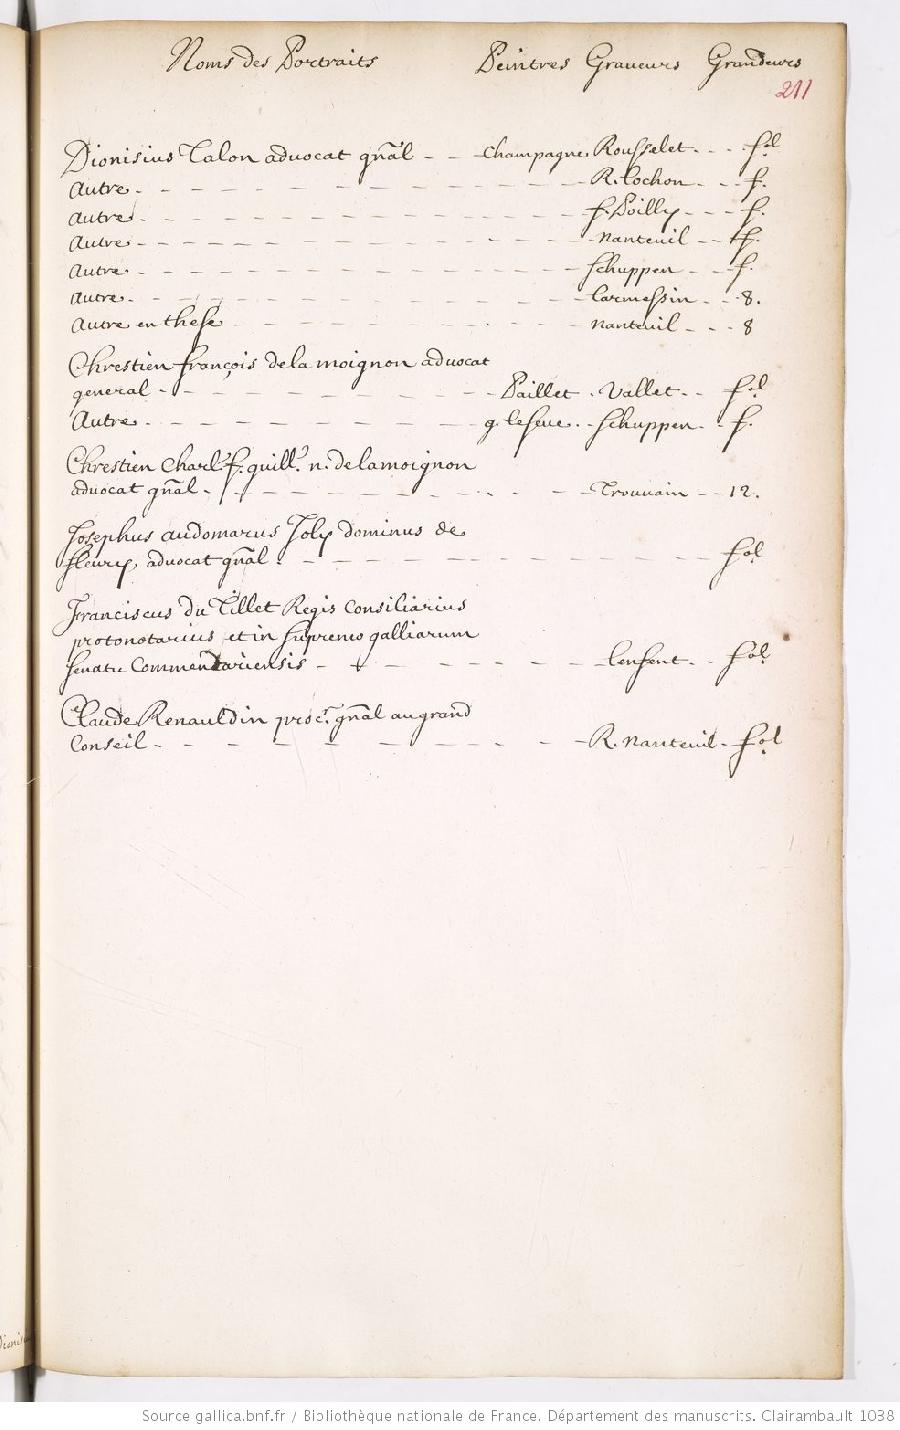 Noms des Portraits Peintres Graueurs Grandeurs
211
Dionisius Talon aduocat gñal - - Champagne. Rousselet. - - fol
Autre. - - - - - - - - - - R. Lochon - - f.
Autre - - - - - - - - - - f. Poilly - - - f.
Autre - - - - - - - - - - nanteuil - - f.
Autre - - - - - - - - - - Schuppen - - f.
Autre - - - - - - - - - - Larmessin - - 8.
Autre en these - - - - - - nanteuil - - - 8
Chrestien françois de la moignon aduocat
general - - - - - - - - Paillet . Vallet - - fol
Autre. - - - - - - - - g. lefeue. - Schuppen - f.
Chrestien Charl. f. guill. n. de lamoignon
aduocat gñal. - - - - - - - - Trouuain - - 12.
Josephus audomarus Joly dominus de
fleury, aduocat gñal - - - - - - - - - - fol
Franciscus du Tillet Regis Consiliarius
protonotarius et in supremo galliarum
senatu Commentariensis - - - - - - Lenfent - - fol
Claude Renauldin proc.r gñal au grand
Conseil - - - - - - - - - R. nanteuil - fol
Source gallica.bnf.fr / Bibliothèque nationale de France. Département des manuscrits. Clairambault 1038